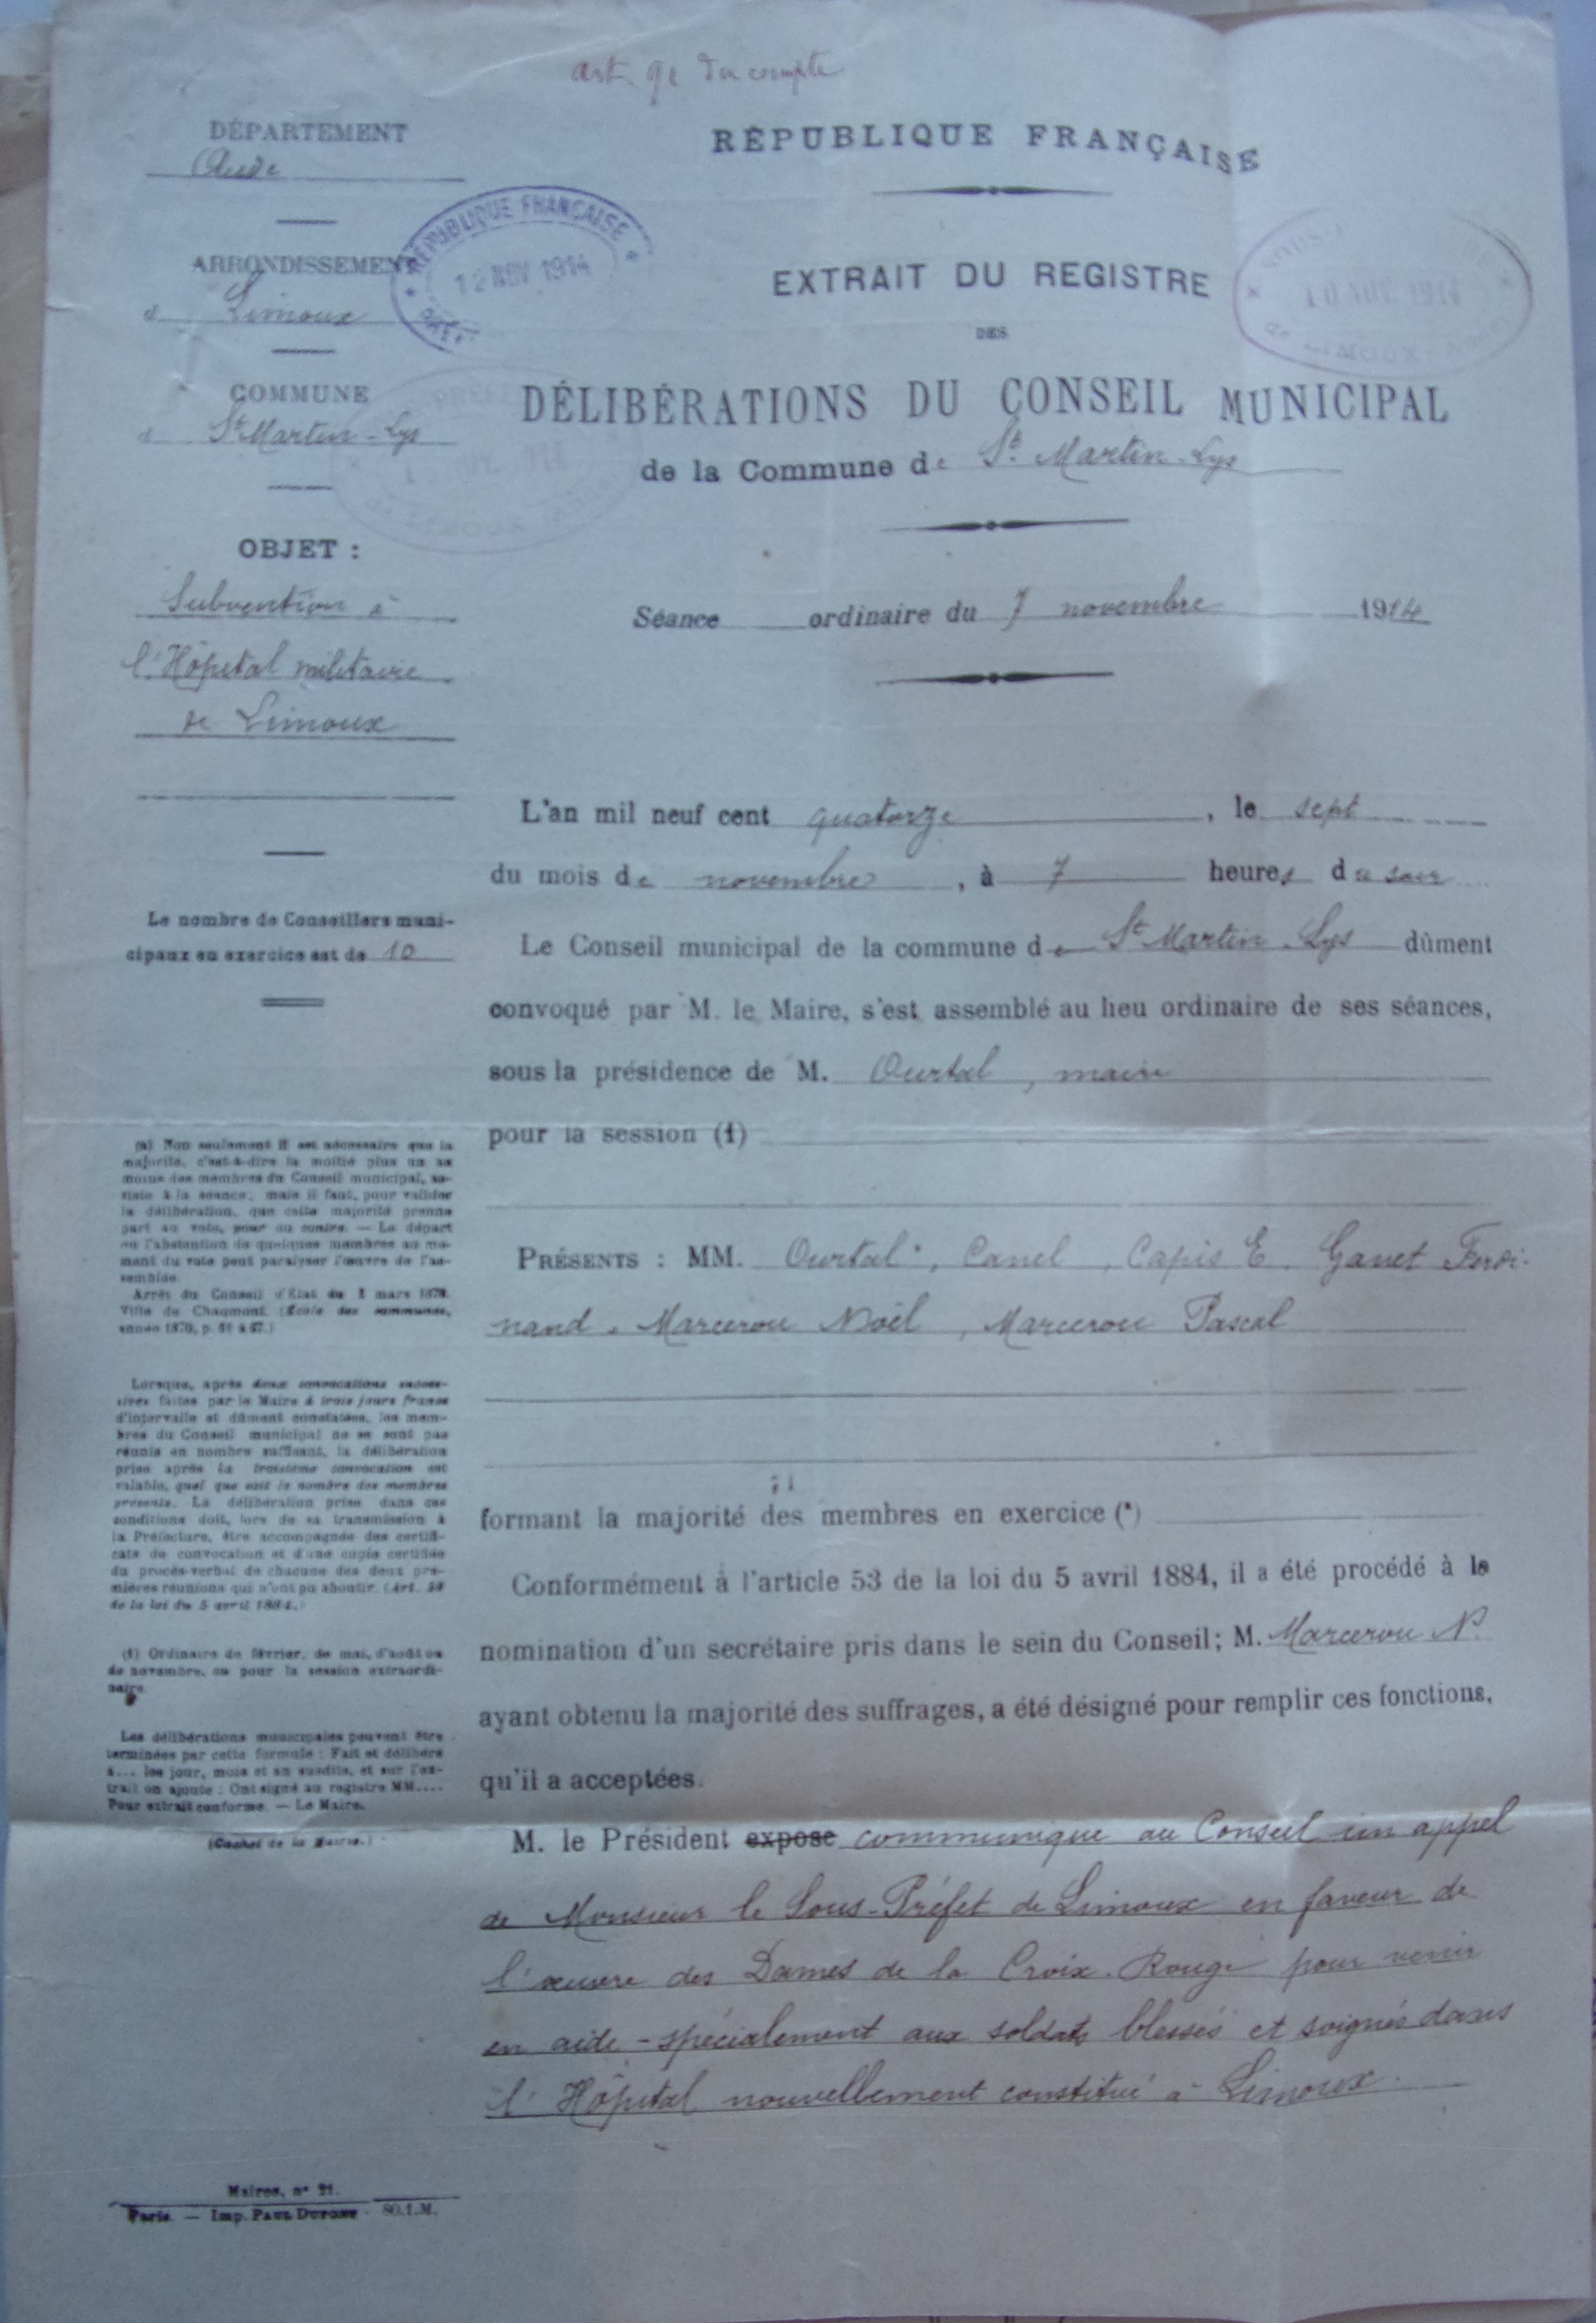 art. 91 du compte
DÉPARTEMENT
Aude
ARRONDISSEMENT
d Limoux
COMMUNE
d St Martin-Lys
OBJET :
Subvention à
l'Hôpital militaire
de Limoux
Le nombre de Conseillers muni-
cipaux en exercice est de 10
(a) Non seulement il est nécessaire que la
majorité, c'est-à-dire la moitié plus un au
moins des membres du Conseil municipal, as-
siste à la séance; mais il faut, pour valider
la délibération, que cette majorité prenne
part au vote, pour ou contre. — Le départ
ou l'abstention de quelques membres au mo-
ment du vote peut paralyser l'œuvre de l'as-
semblée.
Arrêt du Conseil d'État du 1 mars 1870.
Ville de Chaumont. (École des communes,
année 1870, p. 61 à 67.)
Lorsque, après deux convocations succes-
sives faites par le Maire à trois jours francs
d'intervalle et dûment constatées, les mem-
bres du Conseil municipal ne se sont pas
réunis en nombre suffisant, la délibération
prise après la troisième convocation est
valable, quel que soit le nombre des membres
présents. La délibération prise dans ces
conditions doit, lors de sa transmission à
la Préfecture, être accompagnée des certifi-
cats de convocation et d'une copie certifiée
du procès-verbal de chacune des deux pre-
mières réunions qui n'ont pu aboutir. (Art. 50
de la loi du 5 avril 1884.)
(1) Ordinaire de février, de mai, d'août ou
de novembre, ou pour la session extraordi-
naire.
Les délibérations municipales peuvent être
terminées par cette formule : Fait et délibéré
à.... les jour, mois et an susdits, et sur l'ex-
trait on ajoute : Ont signé au registre MM....
Pour extrait conforme. — Le Maire.
(Cachet de la Mairie.)
Maires, n° 21.
Paris. — Imp. PAUL DUPONT 80.1.M.
RÉPUBLIQUE FRANÇAISE
12 NOV 1914
RÉPUBLIQUE FRANÇAISE
10 NOV. 1914
de LIMOUX
EXTRAIT DU REGISTRE
DES
DÉLIBÉRATIONS DU CONSEIL MUNICIPAL
de la Commune de St. Martin-Lys
Séance ordinaire du 7 novembre 1914
L'an mil neuf cent quatorze, le sept
du mois de novembre, à 7 heures du soir
Le Conseil municipal de la commune de St Martin-Lys dûment
convoqué par M. le Maire, s'est assemblé au lieu ordinaire de ses séances,
sous la présidence de M. Ourtal, maire
pour la session (1)
PRÉSENTS : MM. Ourtal, Canel, Capis E. Ganet Ferdi-
nand. Marcerou Noël, Marcerou Pascal
formant la majorité des membres en exercice (*)
Conformément à l'article 53 de la loi du 5 avril 1884, il a été procédé à la
nomination d'un secrétaire pris dans le sein du Conseil; M. Marcerou N.
ayant obtenu la majorité des suffrages, a été désigné pour remplir ces fonctions,
qu'il a acceptées.
M. le Président expose communique au Conseil un appel
de Monsieur le Sous-Préfet de Limoux en faveur de
l'œuvre des Dames de la Croix-Rouge pour venir
en aide - spécialement aux soldats blessés et soignés dans
l'Hôpital nouvellement constitué à Limoux.